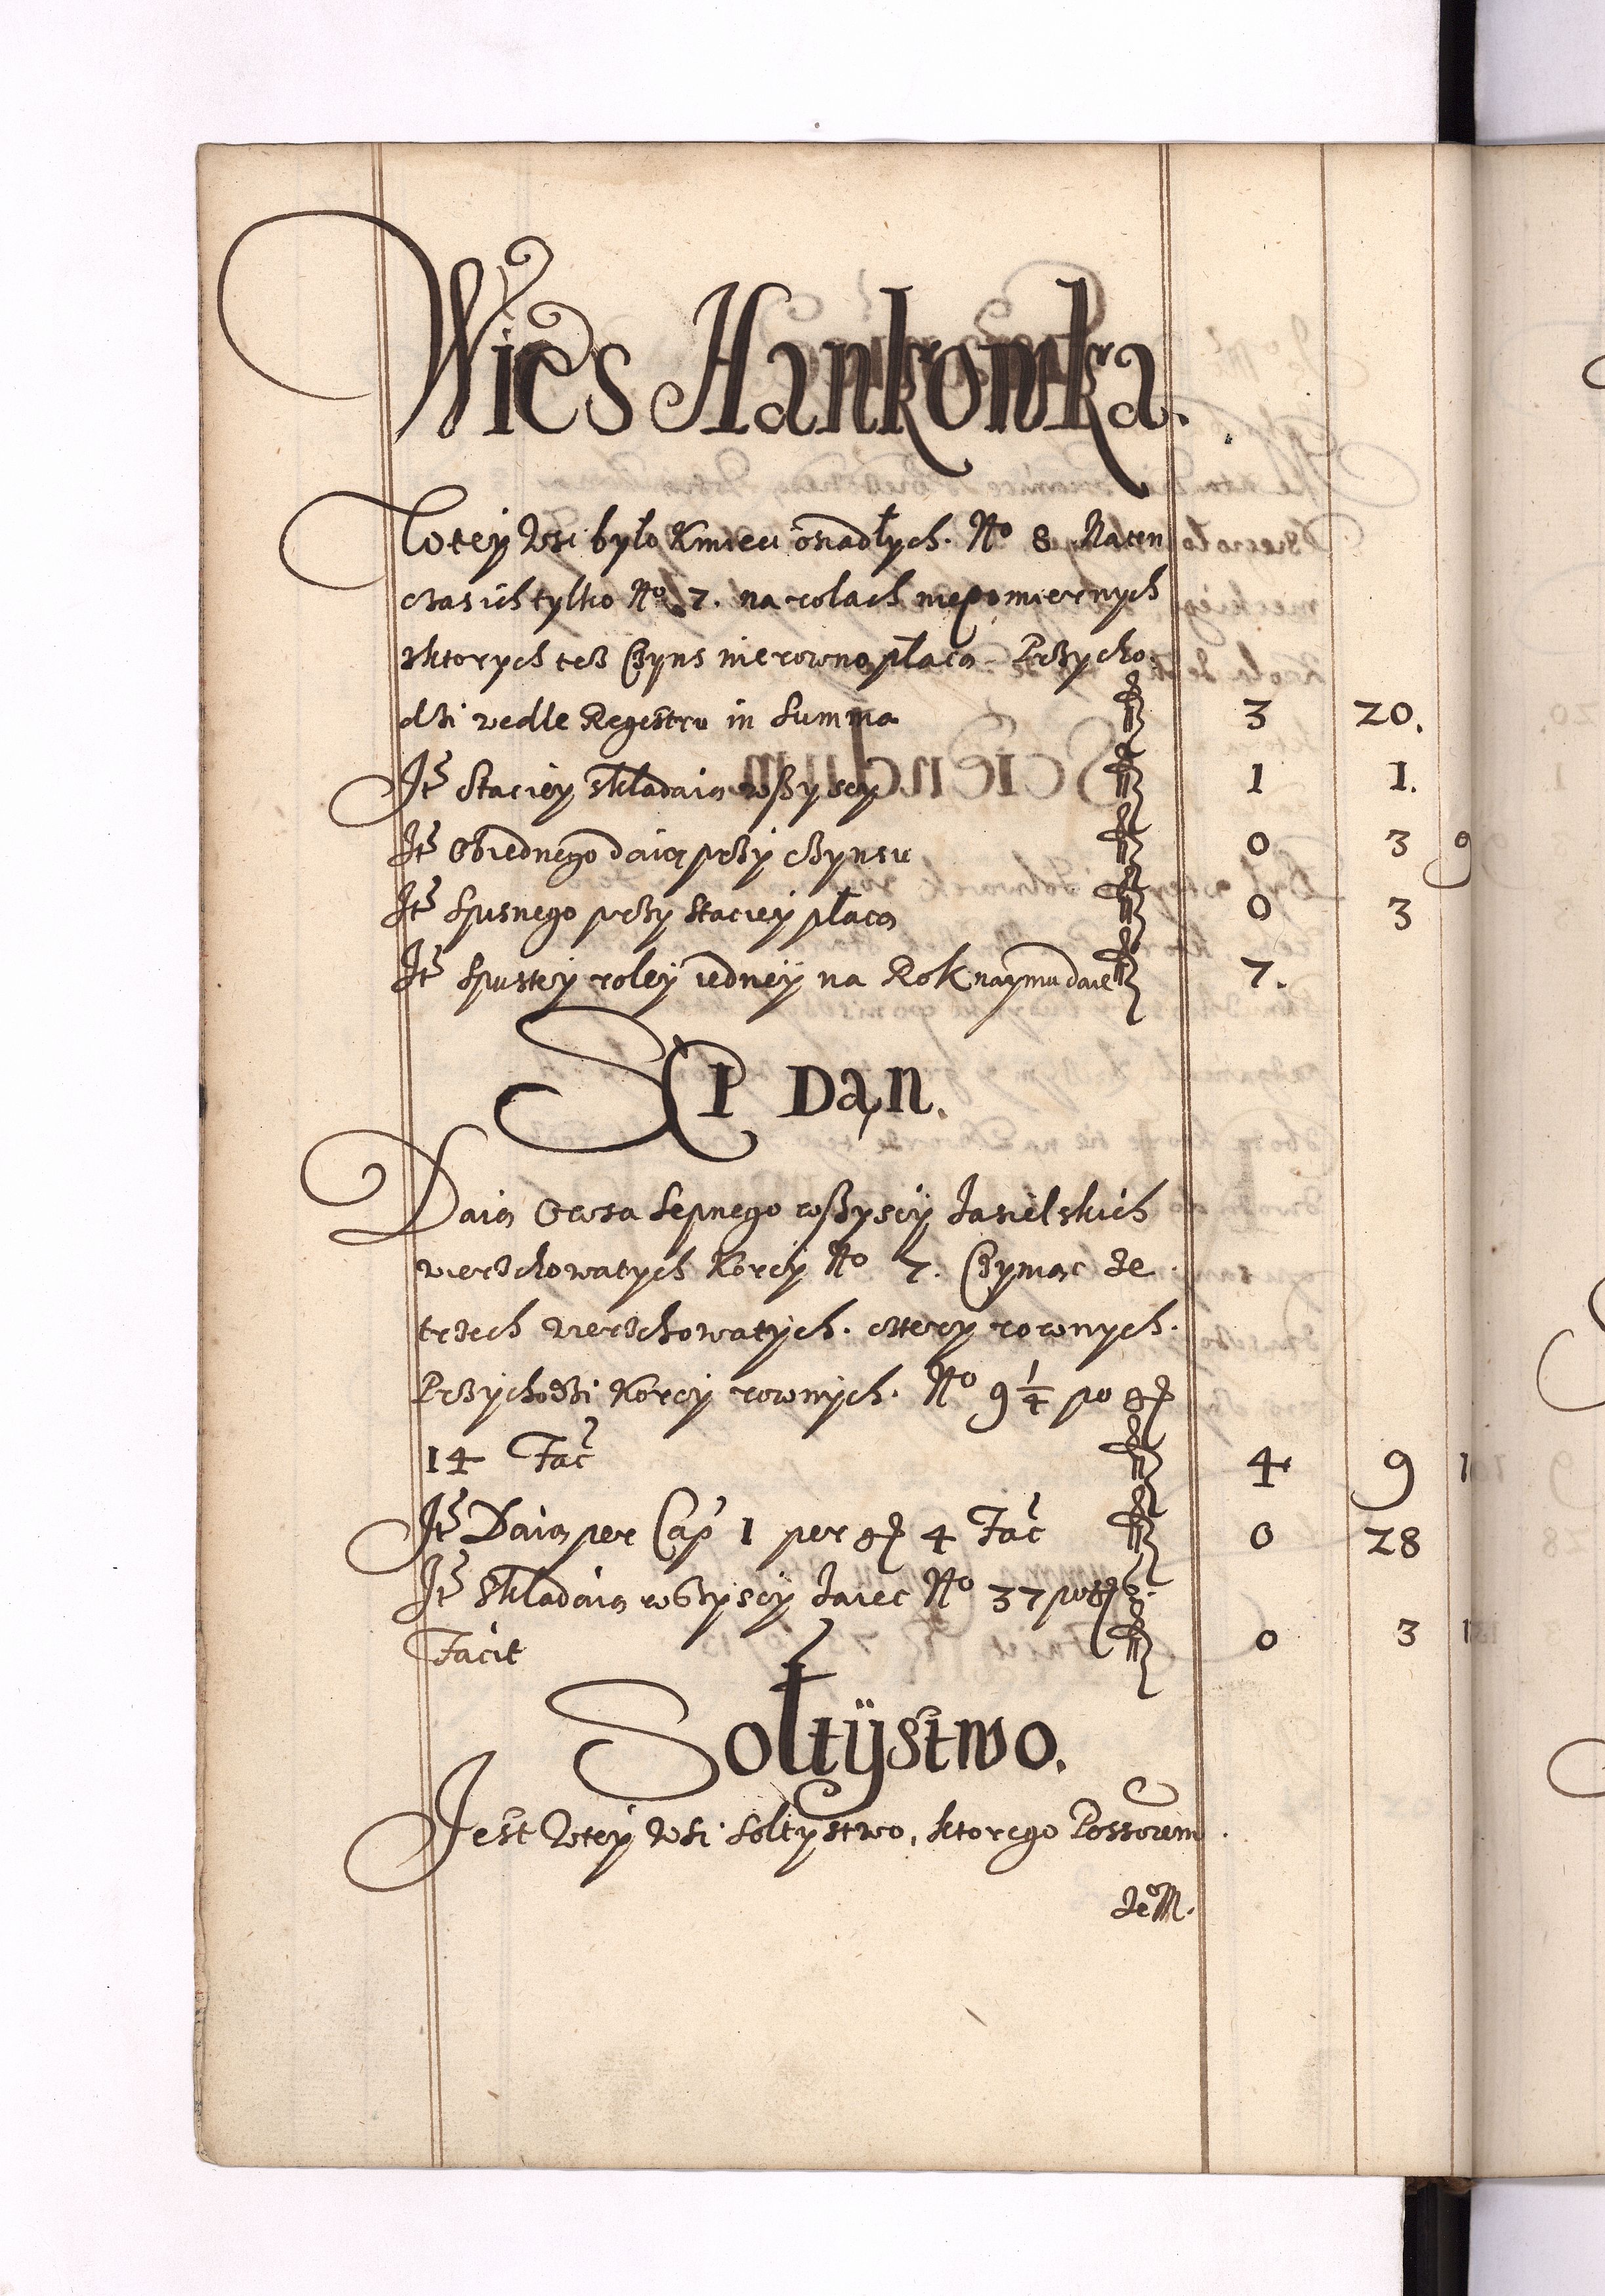 Wies Hankowka.
W tey Wsi było Kmieci osiadłych. No 8 Na ten
czas ich tylko No 7. na rolach niepomiernych
z ktorych teß Czyns nierowno płacą. Przycho
dzi wedle Regestru in Summa f 3 20.
It Staciey składaią wßyscy f 1 1.
It Obiednego daią przy czynsu f 0 3 9
It Spusnego przy Staciey płacą f 0 3
It Spustey roley iedney na Rok naymu daie f 7.
SEP Dan.
Daią Owsa Sepnego wßyscy Jasielskich
wierzchowatych Korcy No 7. Czyniąc ze
trzech wierzchowatych. cztery rownych.
Przychodzi Korcy rownych. No 9 1/4 po gr
14 Fac f 4 9
It Daią per Cap 1 per gr 4 Fac f 0 28
It Składaią wßyscy Jaiec No 37
Facit f 0 3
Sołtÿstwo.
Jest W tey Wsi Sołtystwo, ktorego Possorem
Je M.